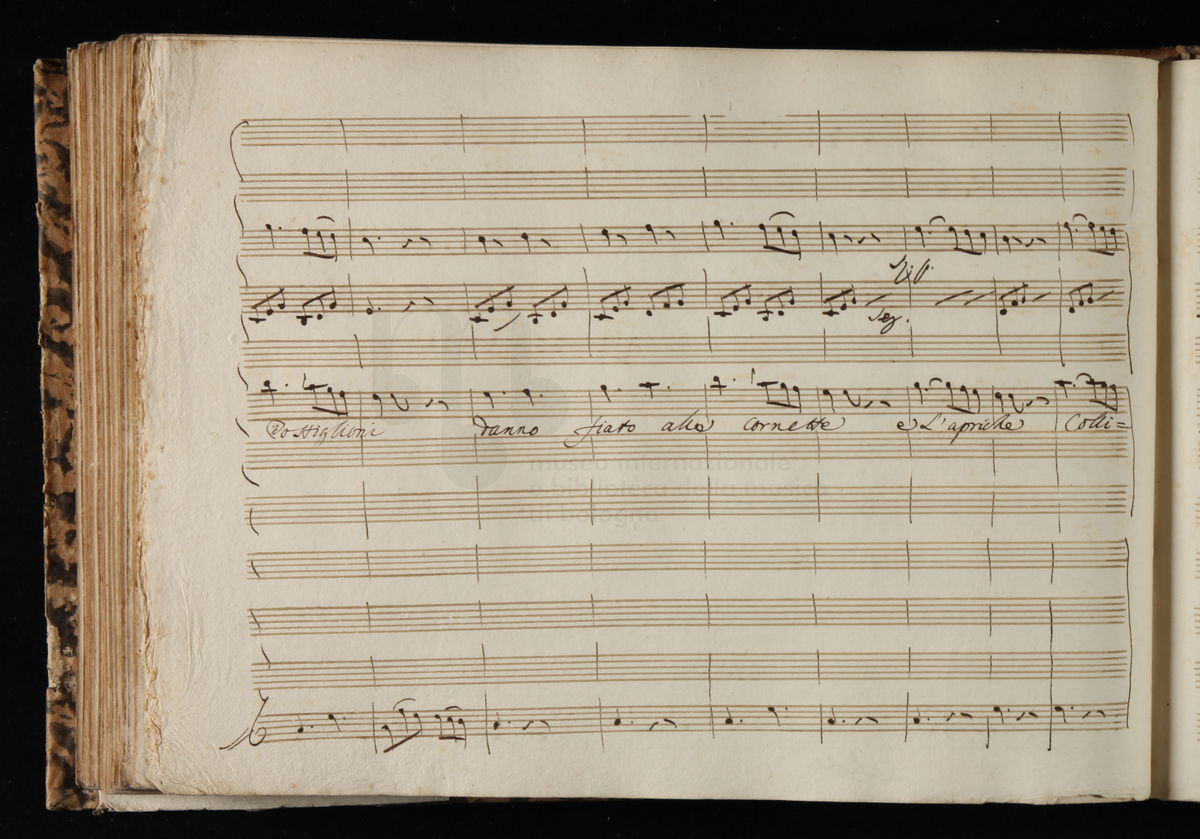 Seg.
Postiglioni danno fiato alle cornette e L'apriche Colli=
museo internazionale
e biblioteca della musica
di bologna